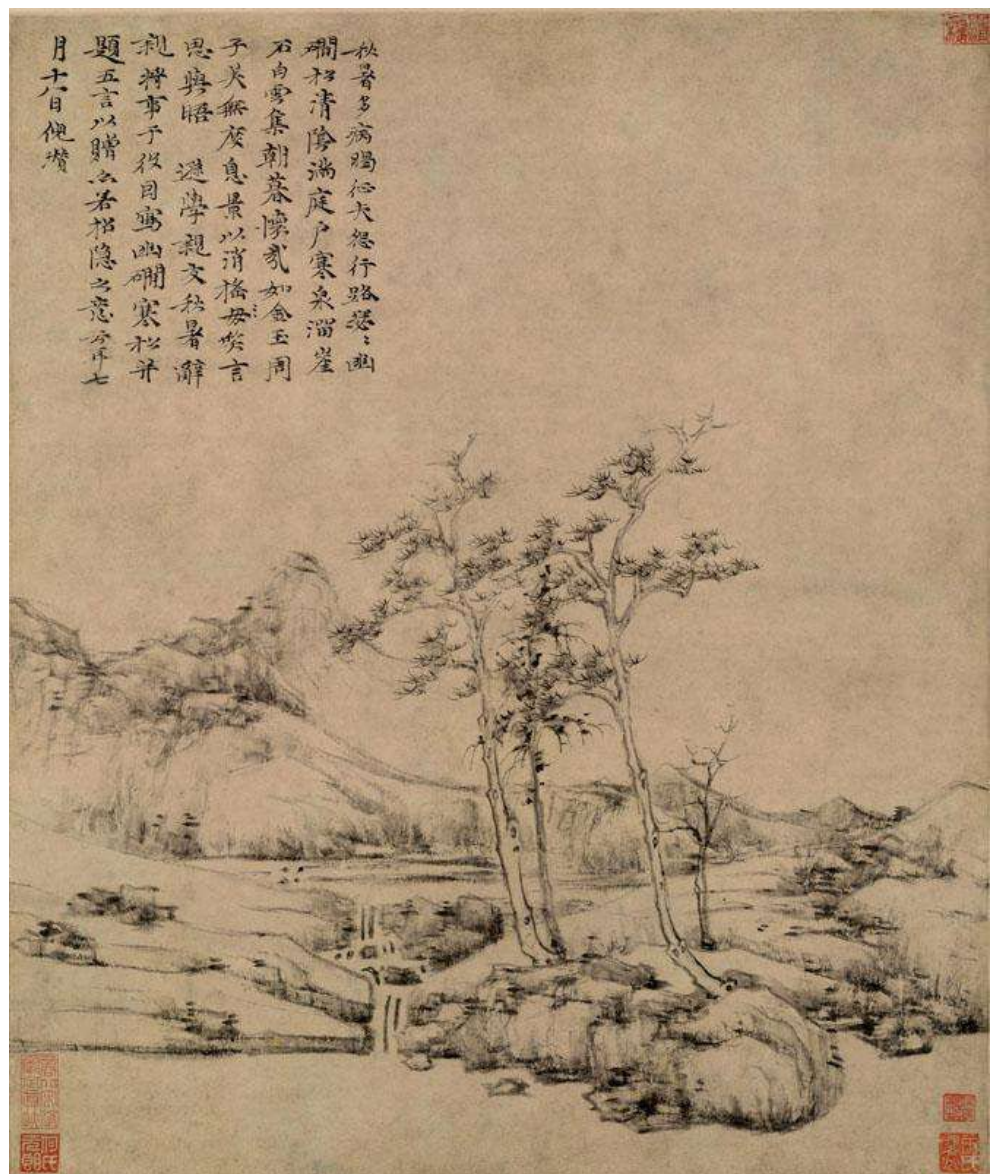 秋暑多病暍征夫怨行路瑟〻幽
磵松清陰滿庭户寒泉溜崖
石白雲集朝暮懷哉如金玉周
子美無度息景以消摇毋笑言
思與晤 遜學親友秋暑辭
親將事于役因寫幽磵寒松并
題五言以贈亦若招隱之意云耳七
月十八日倪瓚